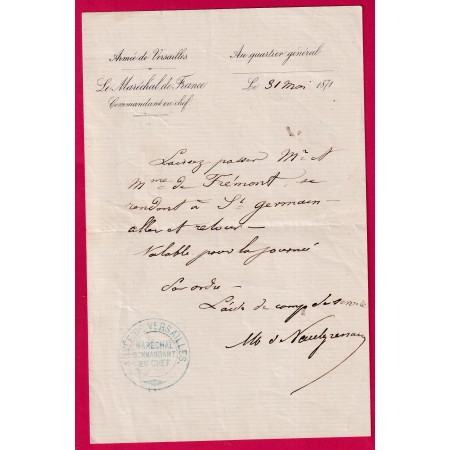 Armée de Versailles
Le Maréchal de France
Commandant en chef
Au quartier général
Le 31 Mai 1871
Laissez passer Mr et
Mme de Frémont, se
rendant à St germain
aller et retour —
Valable pour la journée
Par ordre —
L'aide de camp de service
ARMÉE DE VERSAILLES
MARÉCHAL
COMMANDANT
EN CHEF